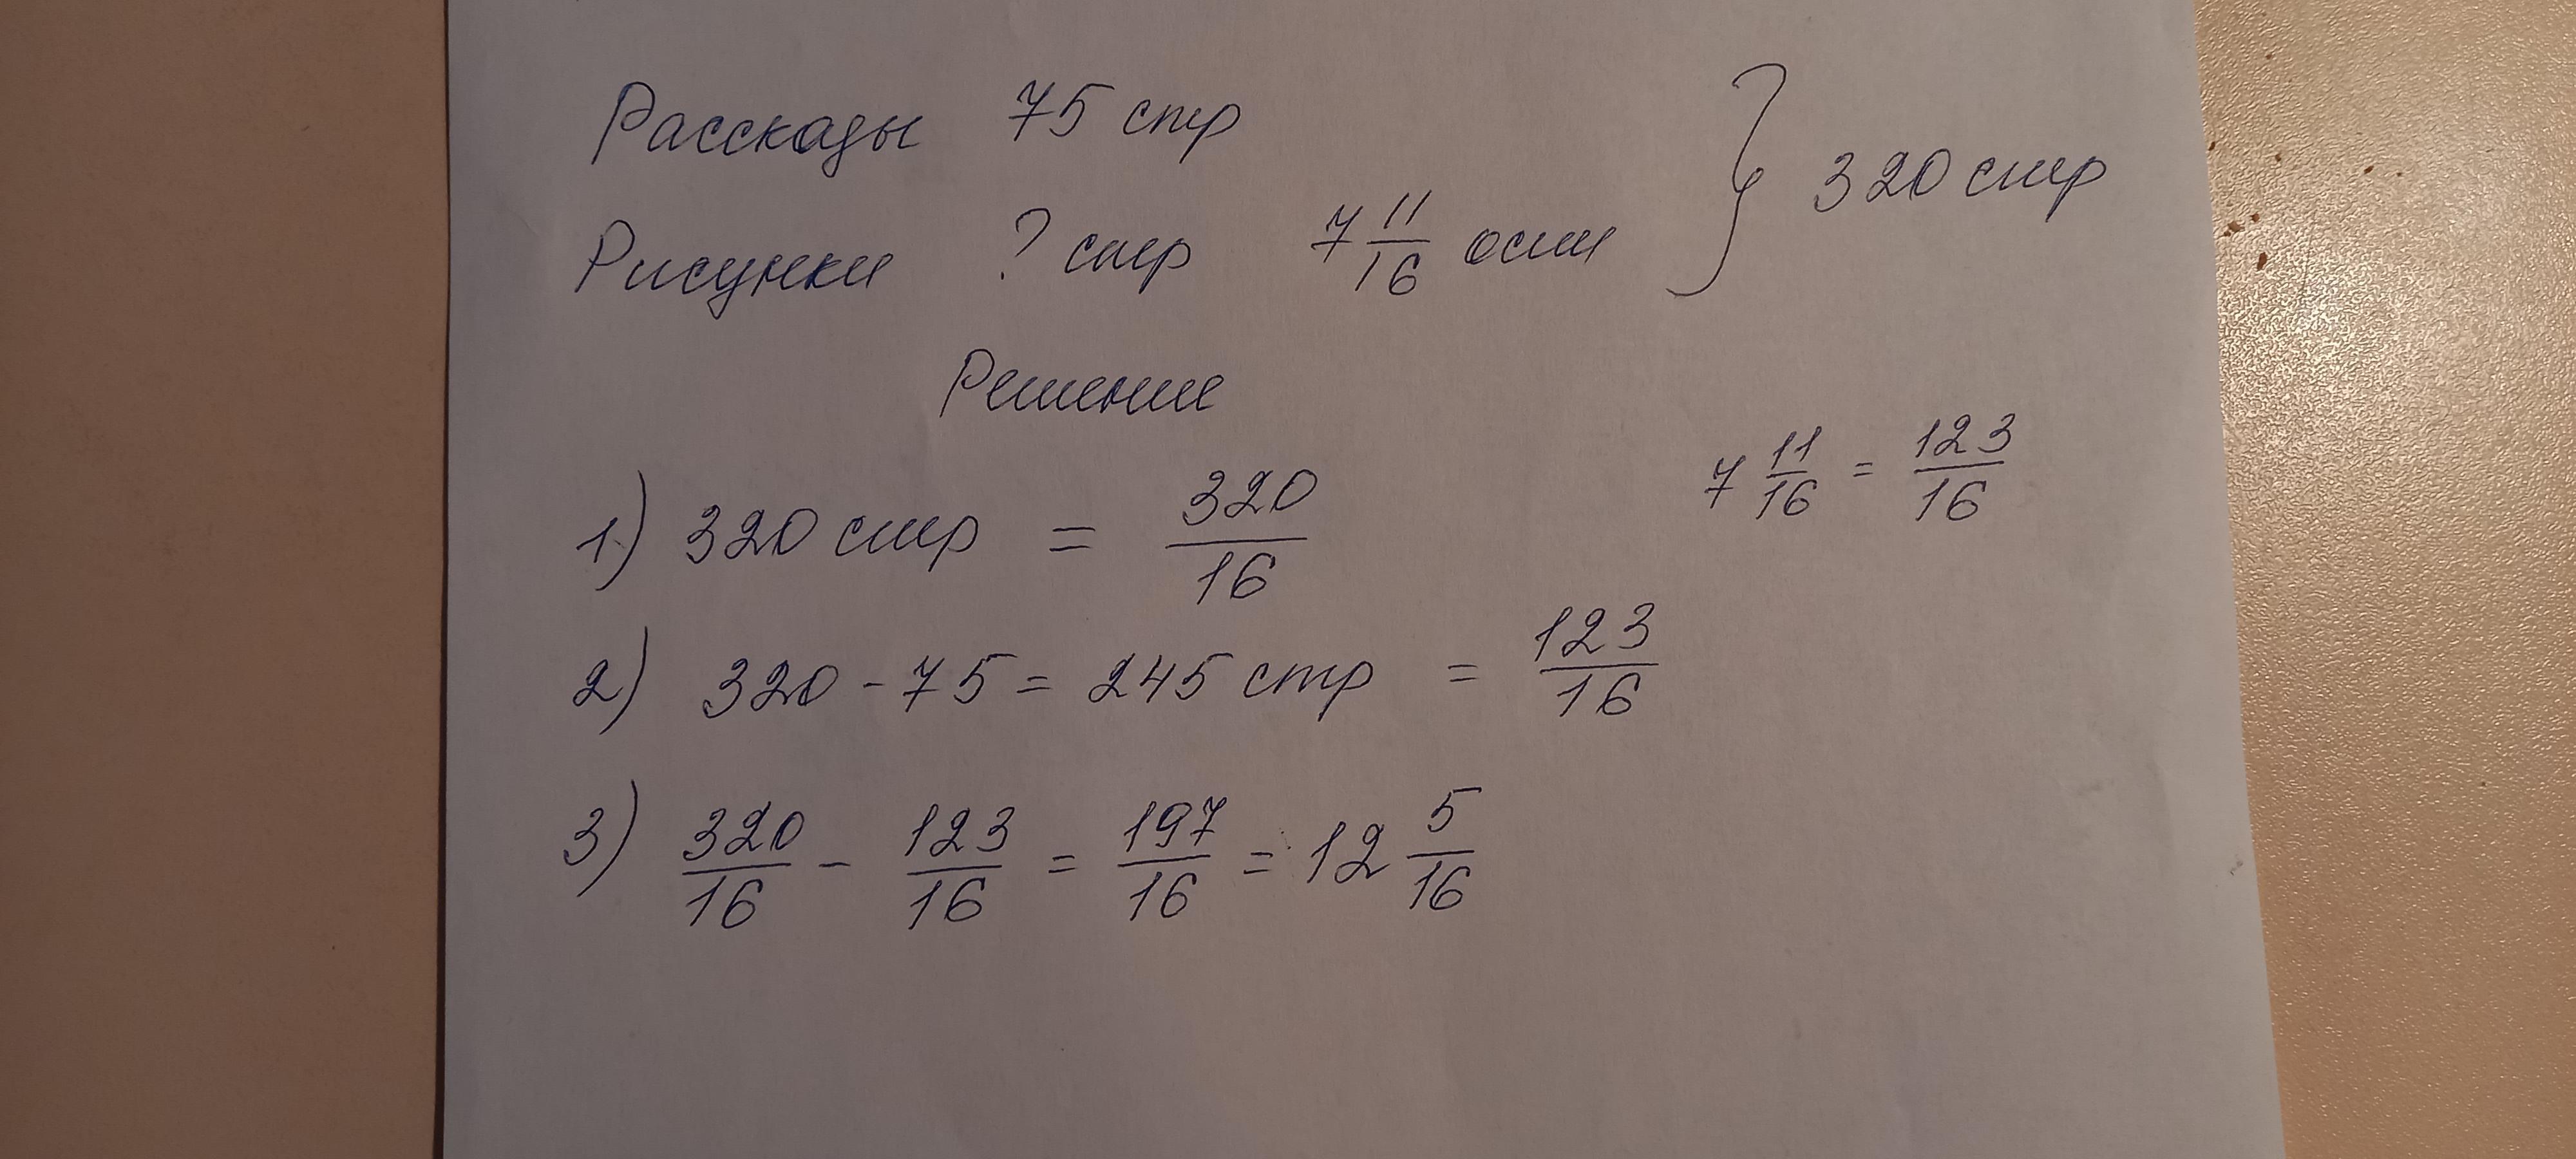 Рассказы 75 стр
Рисунки ? стр 7 11/16 ост } 320 стр
Решение
7 11/16 = 123/16
1) 320 стр = 320/16
2) 320 - 75 = 245 стр = 123/16
3) 320/16 - 123/16 = 197/16 = 12 5/16